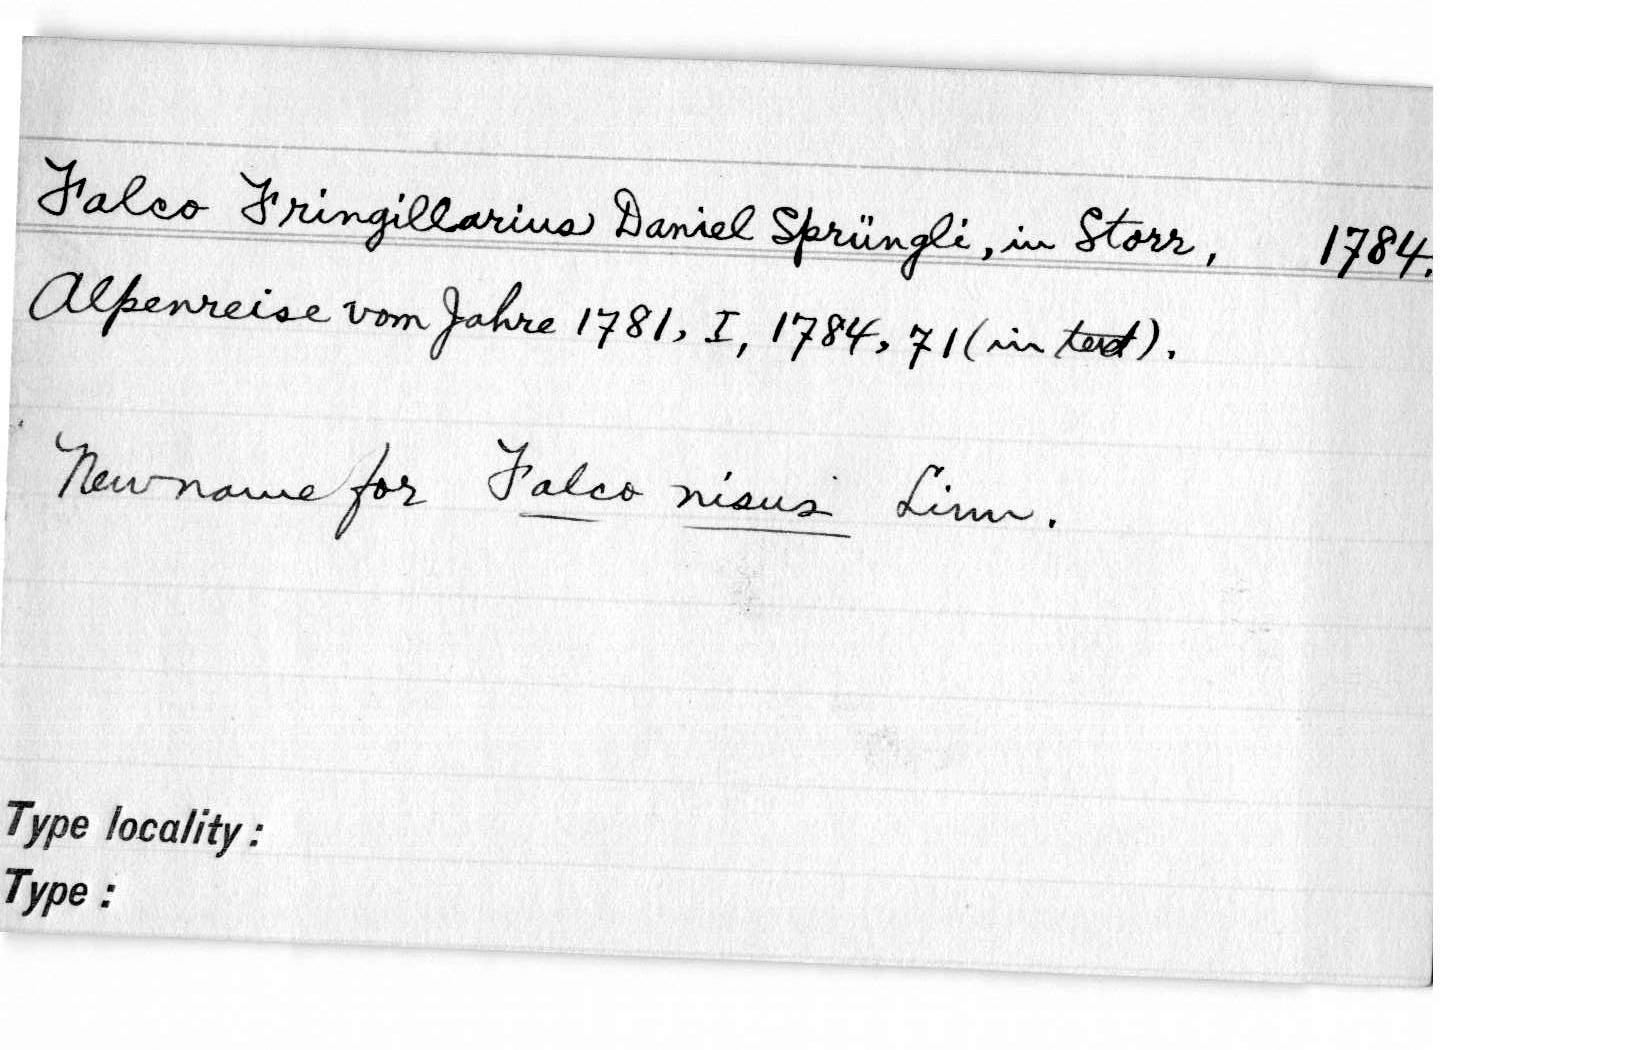 Falco Fringillarius Daniel Sprüngli, in Storr, 1784.
Alpenreise vom Jahre 1781, I, 1784, 71 (in text).
New name for Falco nisus Linn.
Type locality:
Type: